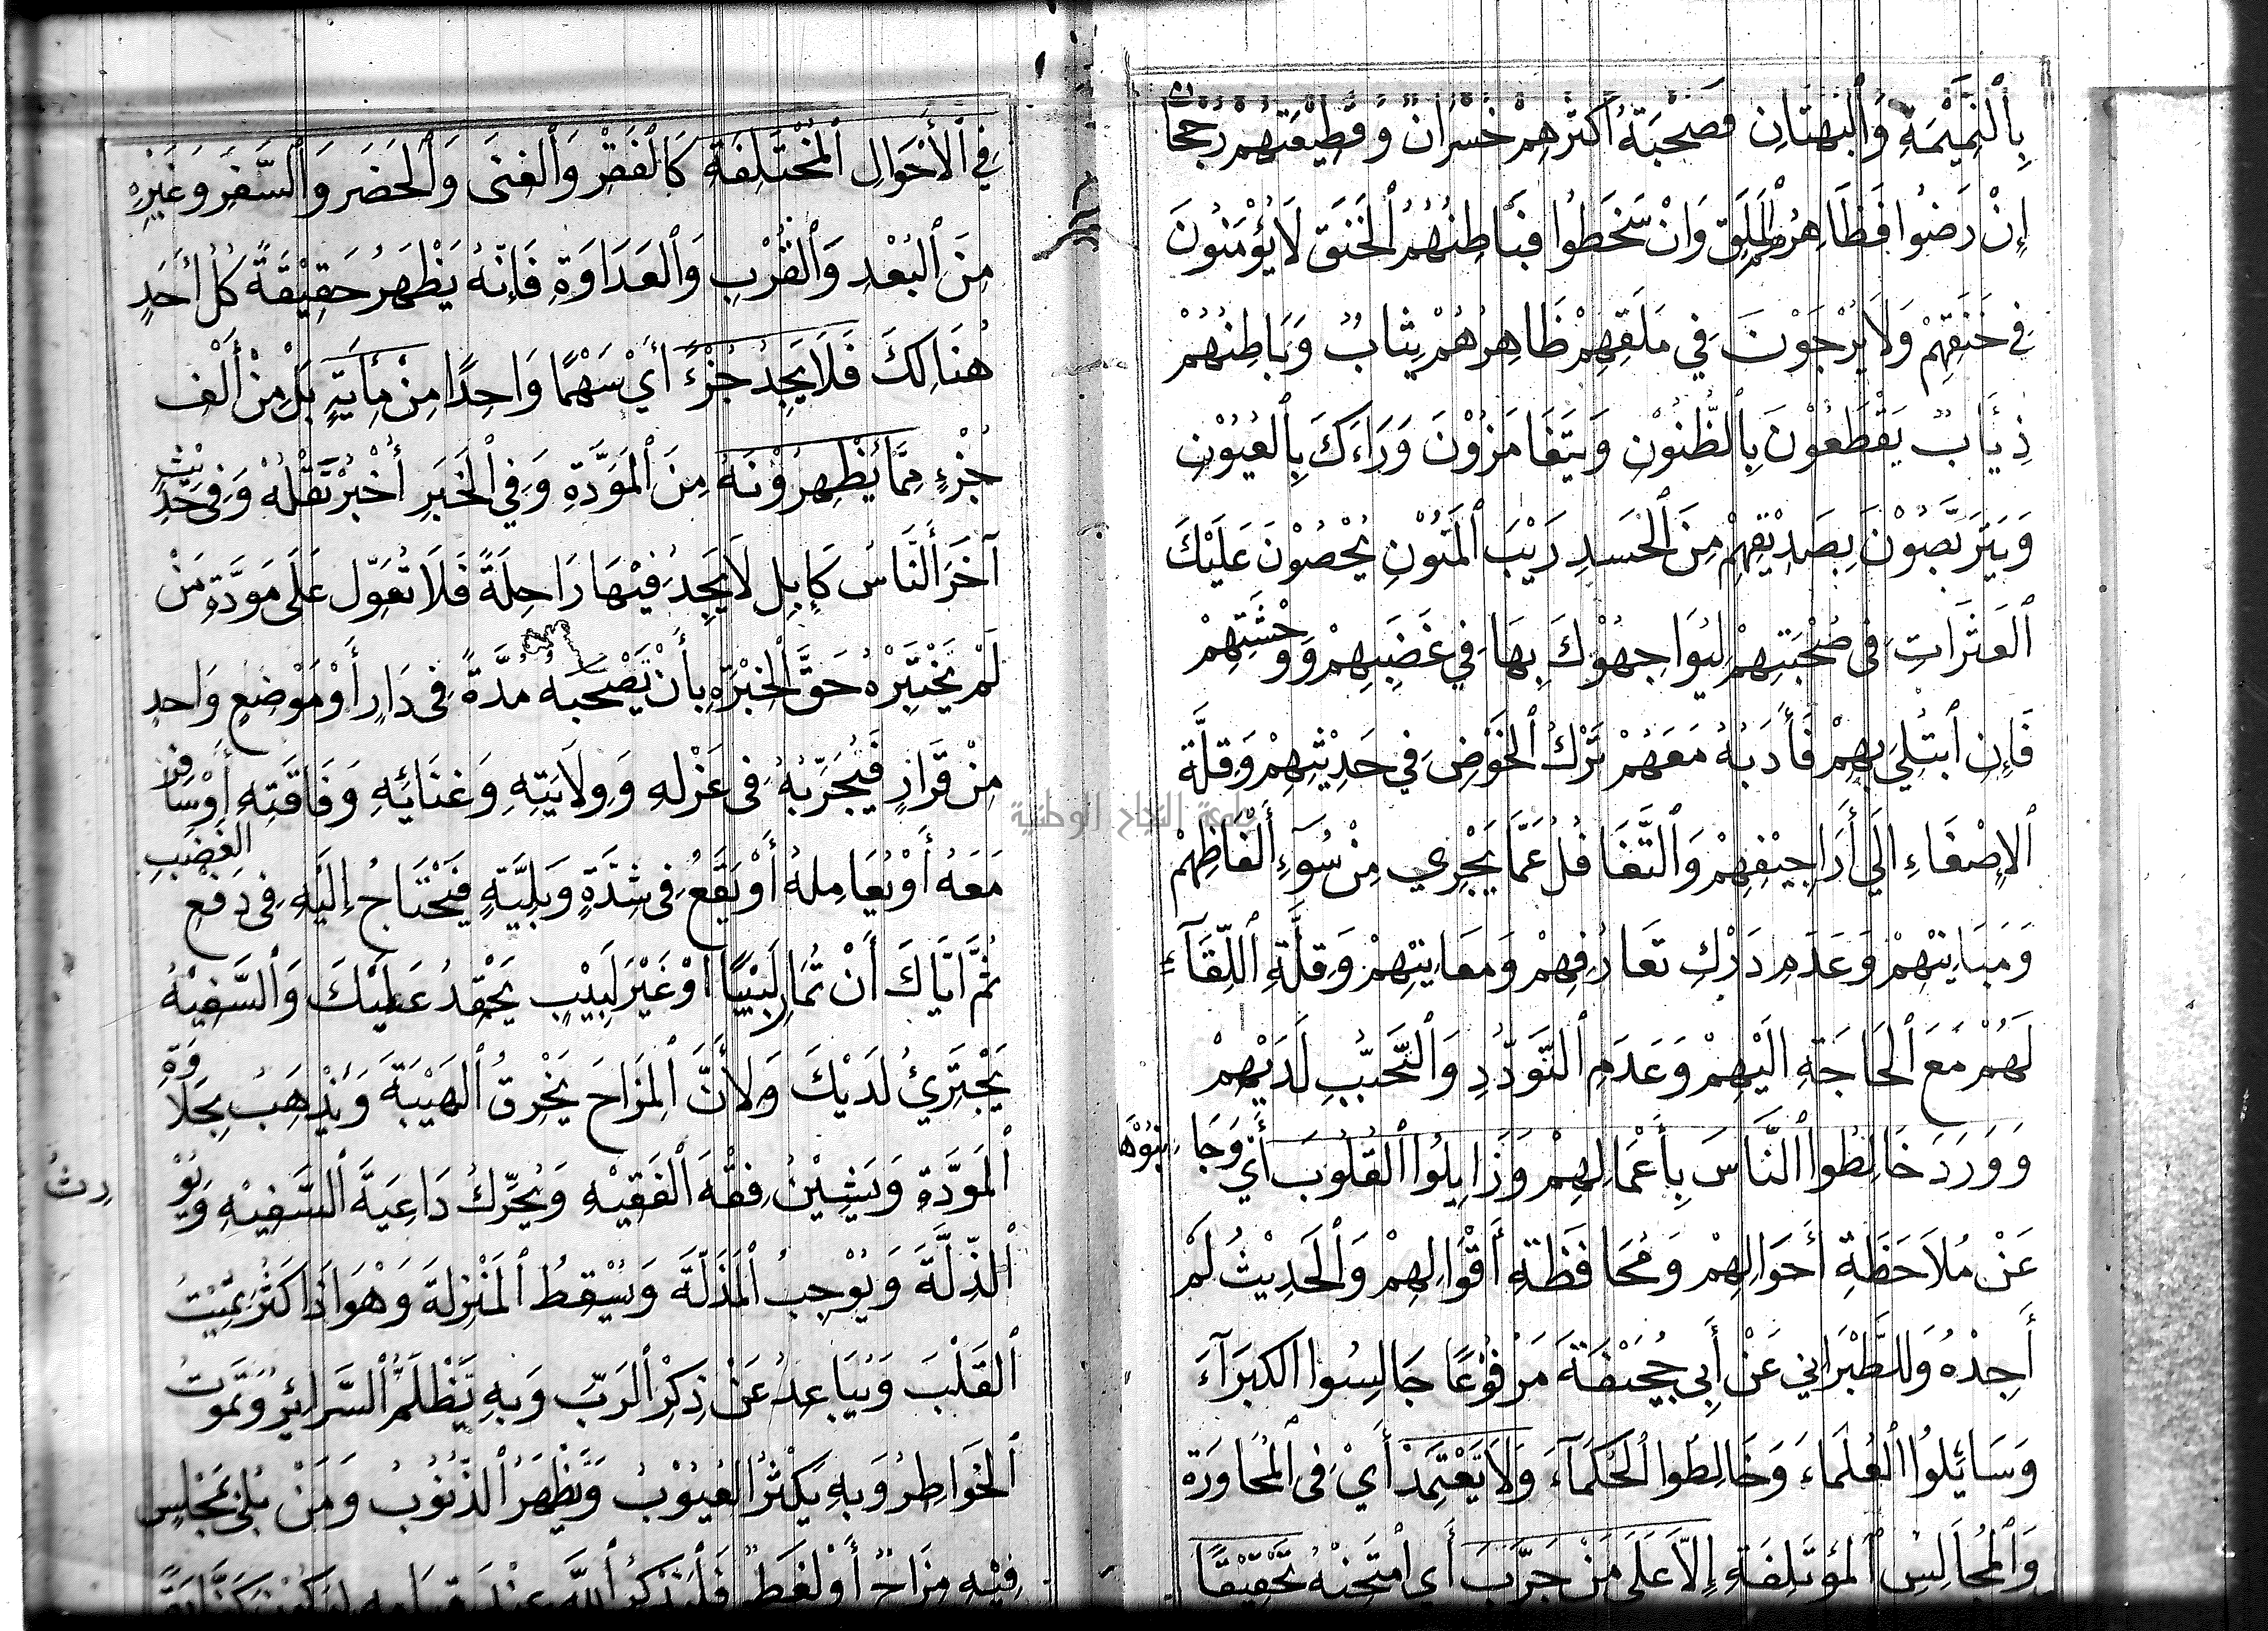 بِٱلنَّمِيْمَةِ وَٱلْبُهْتَانِ فَصُحْبَةُ أَكْثَرِهِمْ خُسْرَانٌ وَقَطِيْعَتُهُمْ رُجْحَانٌ
إِنْ رَضُوا فَظَاهِرُهُمُ ٱلْمَلَقُ وَإِنْ سَخَطُوا فَبَاطِنُهُمُ ٱلْحَنَقُ لَا يُؤْمَنُونَ
فِي حَنَقِهِمْ وَلَا يُرْجَوْنَ فِي مَلَقِهِمْ ظَاهِرُهُمْ ثِيَابٌ وَبَاطِنُهُمْ
ذِيَابٌ يَقْطَعُوْنَ بِالظُّنُوْنِ وَيَتَغَامَزُوْنَ وَرَاءَكَ بِٱلعُيُوْنِ
وَيَتَرَبَّصُوْنَ بِصَدِيْقِهِمْ مِنَ ٱلْحَسَدِ رَيْبَ ٱلْمَنُوْنِ يُحْصُوْنَ عَلَيْكَ
ٱلعَثَرَاتِ فِى صُحْبَتِهِمْ لِيُوَاجِهُوْكَ بِهَا فِي غَضَبِهِمْ وَوَحْشَتِهِمْ
فَإِنِ ٱبْتُلِيَ بِهِمْ فَأَدَبُهُ مَعَهُمْ تَرْكُ ٱلْخَوْضِ فِي حَدِيْثِهِمْ وَقِلَّةُ
ٱلإِصْغَاءِ إِلَى أَرَاجِيْفِهِمْ وَٱلتَّغَافُلُ عَمَّا يَجْرِي مِنْ سُوْءِ أَلْفَاظِهِمْ
وَمَبَانِيْهِمْ وَعَدَمِ دَرْكِ تَعَارُفِهِمْ وَمَعَانِيْهِمْ وَقِلَّةِ ٱللِّقَآءِ
لَهُمْ مَعَ ٱلْحَاجَةِ إِلَيْهِمْ وَعَدَمِ ٱلتَّوَدُّدِ وَٱلتَّحَبُّبِ لَدَيْهِمْ
وَوَرَدَ خَالِطُوا ٱلنَّاسَ بِأَعْمَالِهِمْ وَزَايِلُوا ٱلقُلُوبَ أَيْ وَجَانِبُوْهَا
عَنْ مُلَاحَظَةِ أَحْوَالِهِمْ وَمُحَافَظَةِ أَقْوَالِهِمْ وَٱلْحَدِيْثُ لَمْ
أَجِدْهُ وَلِلطَّبْرَانِي عَنْ أَبِي جُحَيْفَةَ مَرْفُوْعًا جَالِسُوا ٱلكُبَرَآءَ
وَسَائِلُوا ٱلْعُلَمَاءَ وَخَالِطُوا ٱلْحُكَمَآءَ وَلَا يَعْتَمِدْ أَيْ فِى ٱلْمُحَاوَرَةِ
وَٱلْمُجَالِسِ ٱلْمُؤْتَلِفَةِ إِلَّا عَلَى مَنْ جَرَّبَ أَيِ ٱمْتَحَنْهُ تَحْقِيْقًا
فِي ٱلْأَحْوَالِ ٱلْمُخْتَلِفَةِ كَالْفَقْرِ وَٱلْغِنَى وَٱلْحَضَرِ وَٱلسَّفَرِ وَغَيْرِهِ
مِنَ ٱلْبُعْدِ وَٱلْقُرْبِ وَٱلْعَدَاوَةِ فَإِنَّهُ يَظْهَرُ حَقِيْقَةُ كُلِّ أَحَدٍ
هُنَالِكَ فَلَا يَجِدُ جُزْءً أَيْ سَهْمًا وَاحِدًا مِنْ مِأَيَةٍ بَلْ مِنْ أَلْفِ
جُزْءٍ مِمَّا يُظْهِرُوْنَهُ مِنَ ٱلْمَوَدَّةِ وَفِي ٱلْخَبَرِ أُخْبُرْ تَقْلُهْ وَفِى حَدِيْثٍ
آخَرَ أَلنَّاسُ كَإِبِلٍ لَا يَجِدُ فِيْهَا رَاحِلَةً فَلَا تُعَوِّلْ عَلَى مَوَدَّةِ مَنْ
لَمْ يَخْتَبِرْهُ حَقَّ ٱلْخِبْرَةِ بِأَنْ يَصْحَبَهُ مُدَّةً فِى دَارٍ أَوْ مَوْضِعٍ وَاحِدٍ
مِنْ قَرَارٍ فَيُجَرِّبُهُ فِى عَزْلِهِ وَوِلَايَتِهِ وَغِنَائِهِ وَفَاقَتِهِ أَوْ سَافَرَ
مَعَهُ أَوْ يُعَامِلَهُ أَوْ يَقَعُ فِى شِدَّةٍ وَبَلِيَّةٍ فَيَحْتَاجُ إِلَيْهِ فِى دَفْعِ الغَضَبِ
ثُمَّ إِيَّاكَ أَنْ تُمَازِ لَبِيْبًا أَوْ غَيْرَ لَبِيْبٍ يَحْقِدُ عَلَيْكَ وَٱلسَّفِيْهُ
يَجْتَرِئُ لَدَيْكَ وَلِأَنَّ ٱلْمِزَاحَ يَخْرِقُ ٱلْهَيْبَةَ وَيَذْهَبُ بِحَلَاوَةِ
ٱلْمَوَدَّةِ وَيَشِيْنُ فِقْهَ ٱلْفَقِيْهِ وَيُحَرِّكُ دَاعِيَةَ ٱلسَّفِيْهِ وَيُوْرِثُ
ٱلذِّلَّةَ وَيُوْجِبُ ٱلْمَذَلَّةَ وَيُسْقِطُ ٱلْمَنْزِلَةَ وَهْوَ إِذَا كَثُرَ يُمِيْتُ
ٱلقَلْبَ وَيُبَاعِدُ عَنْ ذِكْرِ ٱلرَّبِّ وَبِهِ تَظْلَمُ ٱلسَّرَائِرُ وَتَمُوتُ
ٱلْخَوَاطِرُ وَبِهِ يَكْثُرُ ٱلْعُيُوْبُ وَيَظْهَرُ ٱلذُّنُوْبُ وَمَنْ بُلِيَ بِمَجْلِسٍ
فِيْهِ مِزَاحٌ أَوْ لَغَطٌ فَلْيَذْكُرِ ٱللَّهَ عِنْدَ قِيَامِهِ
جامعة النجاح الوطنية